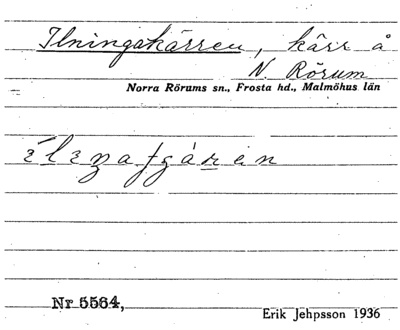 Ilningakärren, kärr å
N. Rörum
Norra Rörums sn., Frosta hd., Malmöhus län
Nr 5564,
Erik Jehpsson 1936